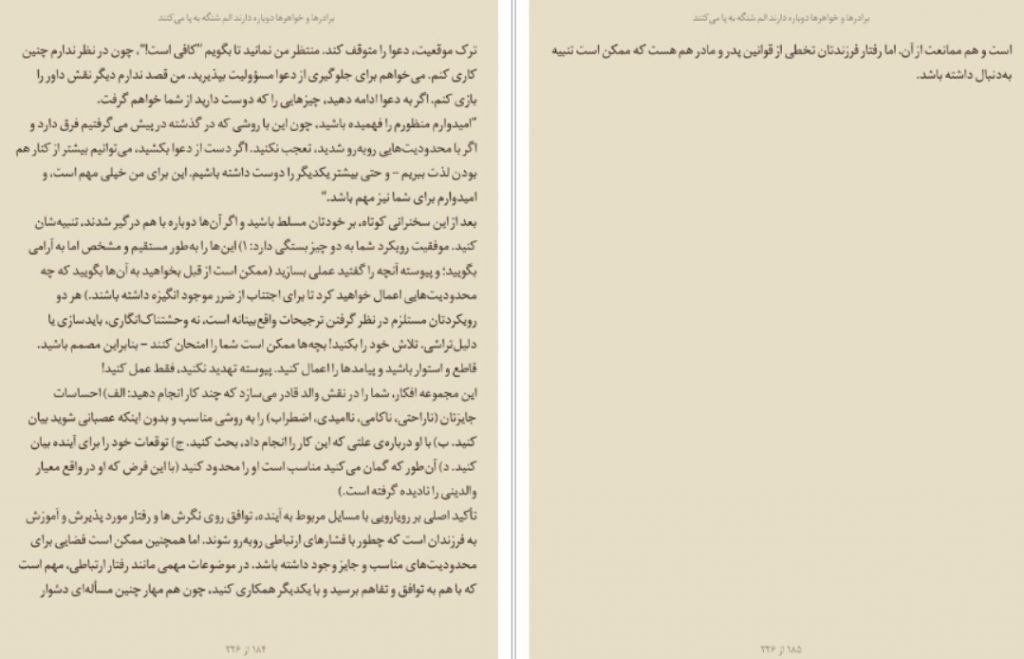 برادرها و خواهرها دوباره دارند الم شنگه به پا می‌کنند
ترک موقعیت، دعوا را متوقف کند. منتظر من نمانید تا بگویم "کافی است!"، چون در نظر ندارم چنین
کاری کنم. می‌خواهم برای جلوگیری از دعوا مسؤولیت بپذیرید. من قصد ندارم دیگر نقش داور را
بازی کنم. اگر به دعوا ادامه دهید، چیزهایی را که دوست دارید از شما خواهم گرفت.
"امیدوارم منظورم را فهمیده باشید، چون این با روشی که در گذشته در پیش می‌گرفتیم فرق دارد و
اگر با محدودیت‌هایی روبه‌رو شدید، تعجب نکنید. اگر دست از دعوا بکشید، می‌توانیم بیشتر از کنار هم
بودن لذت ببریم - و حتی بیشتر یکدیگر را دوست داشته باشیم. این برای من خیلی مهم است، و
امیدوارم برای شما نیز مهم باشد."
بعد از این سخنرانی کوتاه، بر خودتان مسلط باشید و اگر آن‌ها دوباره با هم درگیر شدند، تنبیه‌شان
کنید. موفقیت رویکرد شما به دو چیز بستگی دارد: ۱) این‌ها را به‌طور مستقیم و مشخص اما به آرامی
بگویید؛ و پیوسته آنچه را گفتید عملی بسازید (ممکن است از قبل بخواهید به آن‌ها بگویید که چه
محدودیت‌هایی اعمال خواهید کرد تا برای اجتناب از ضرر موجود انگیزه داشته باشند.) هر دو
رویکردتان مستلزم در نظر گرفتن ترجیحات واقع‌بینانه است، نه وحشتناک‌انگاری، بایدسازی یا
دلیل‌تراشی. تلاش خود را بکنید! بچه‌ها ممکن است شما را امتحان کنند - بنابراین مصمم باشید.
قاطع و استوار باشید و پیامدها را اعمال کنید. پیوسته تهدید نکنید، فقط عمل کنید!
این مجموعه افکار، شما را در نقش والد قادر می‌سازد که چند کار انجام دهید: الف) احساسات
جایزتان (ناراحتی، ناکامی، ناامیدی، اضطراب) را به روشی مناسب و بدون اینکه عصبانی شوید بیان
کنید. ب) با او درباره‌ی علتی که این کار را انجام داد، بحث کنید. ج) توقعات خود را برای آینده بیان
کنید. د) آن‌طور که گمان می‌کنید مناسب است او را محدود کنید (با این فرض که او در واقع معیار
والدینی را نادیده گرفته است.)
تأکید اصلی بر رویارویی با مسایل مربوط به آینده، توافق روی نگرش‌ها و رفتار مورد پذیرش و آموزش
به فرزندان است که چطور با فشارهای ارتباطی روبه‌رو شوند. اما همچنین ممکن است فضایی برای
محدودیت‌های مناسب و جایز وجود داشته باشد. در موضوعات مهمی مانند رفتار ارتباطی، مهم است
که با هم به توافق و تفاهم برسید و با یکدیگر همکاری کنید، چون هم مهار چنین مسأله‌ای دشوار
۱۸۴ از ۲۲۶
برادرها و خواهرها دوباره دارند الم شنگه به پا می‌کنند
است و هم ممانعت از آن. اما رفتار فرزندتان تخطی از قوانین پدر و مادر هم هست که ممکن است تنبیه
به‌دنبال داشته باشد.
۱۸۵ از ۲۲۶